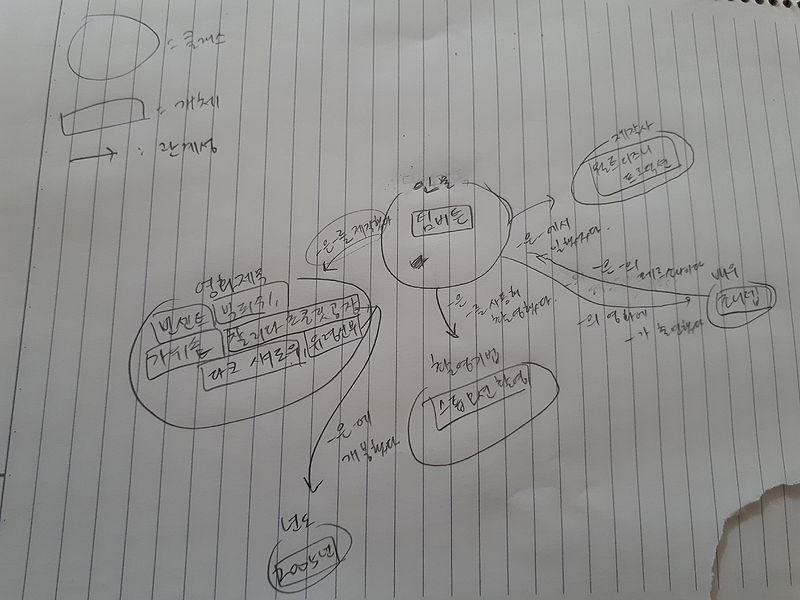 = 클래스
: 개체
: 관계성
인물
팀버튼
제작사
월트디즈니
프로덕션
-은-를 제작했다
-은 -에서
일했었다.
-은 -의
페르소나이다
배우
조니뎁
-의 영화에
-가 출연했다
-은
-를 사용해
촬영했다.
영화제목
빈센트
빅피쉬,
가위손
찰리와 초콜릿공장
다크 섀도우,
유령신부
촬영기법
스톱모션 촬영
-은-에
개봉했다
년도
2005년